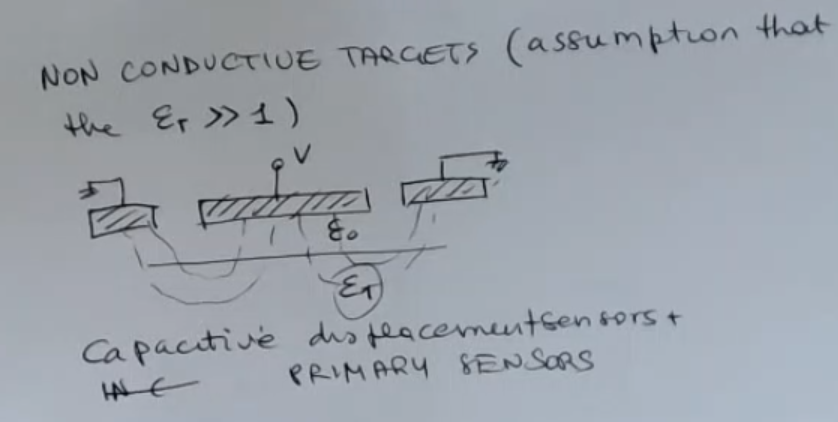 NON CONDUCTIVE TARGETS (assumption that
the εr >> 1)
V
ε₀
εT
Capacitive displacement sensors +
PRIMARY SENSORS